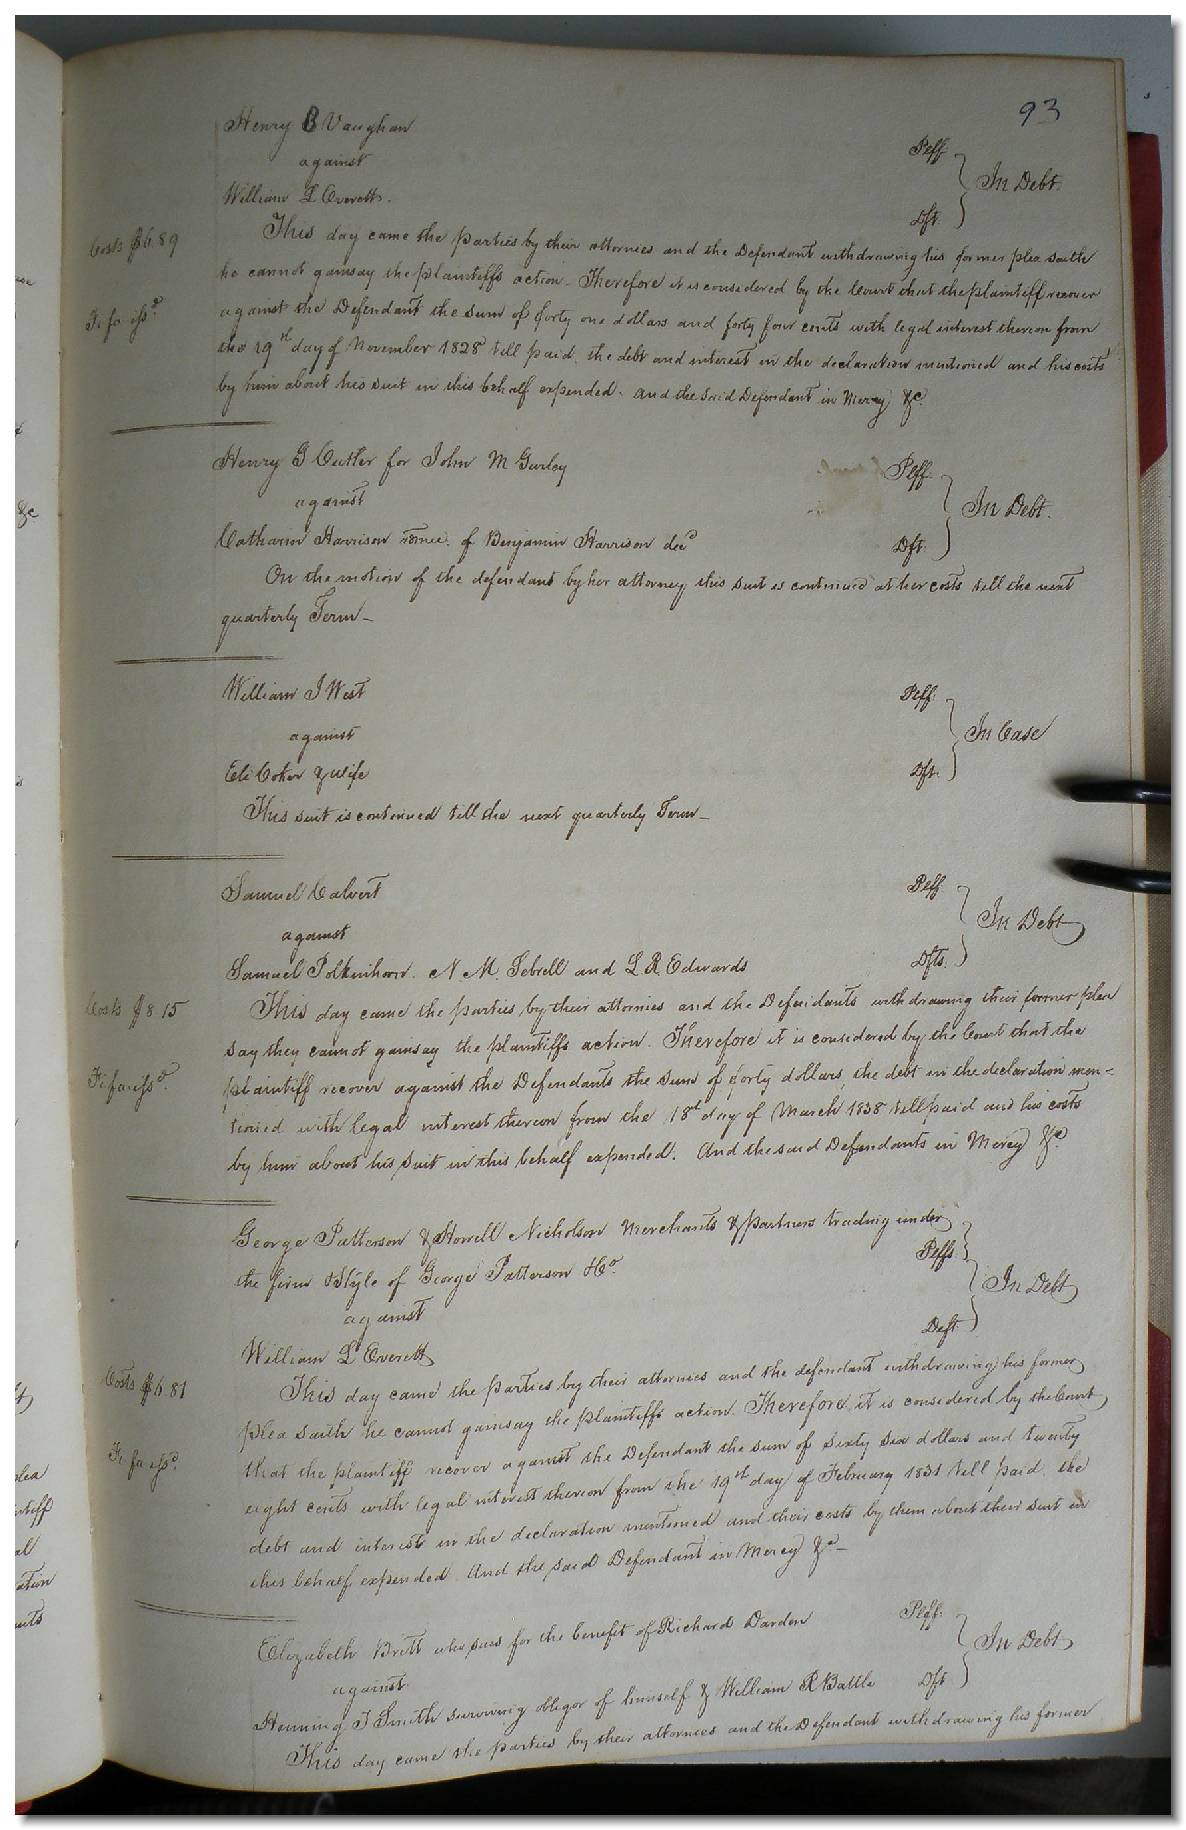 93
Henry B Vaughan Plff
against In Debt.
William L Everett. Dft.
This day came the parties by their attornies and the Defendant withdrawing his former plea saith
Costs $6.89
he cannot gainsay the plaintiffs action. Therefore it is considered by the Court that the plaintiff recover
against the Defendant the sum of forty one dollars and forty four cents with legal interest thereon from
Fi fa issd.
the 19th day of November 1828 till paid, the debt and interest in the declaration mentioned and his costs
by him about his suit in this behalf expended. And the said Defendant in Mercy &c.
Henry G Cutler for John M Gurley Plff.
against In Debt.
Catharin Harrison of Benjamin Harrison decd Dft.
On the motion of the defendant by her attorney this suit is continued at her costs till the next
quarterly Term_
William J West Plff.
against In Case
Eli Coker & wife Dft.
This suit is continued till the next quarterly Term_
Samuel Calvert Plff
against In Debt
Samuel Polkinhorn. N. M. Sebrell and L R. Edwards Dfts.
Costs $8.15
This day came the parties by their attornies and the Defendants withdrawing their former plea
say they cannot gainsay the plaintiffs action. Therefore it is considered by the Court that the
Fi fa issd.
plaintiff recover against the Defendants the sum of forty dollars, the debt in the declaration men-
tioned with legal interest thereon from the 18th day of March 1838 till paid and his costs
by him about his suit in this behalf expended. And the said Defendants in Mercy &c.
George Patterson & Howell Nicholson Merchants & partners trading under
the firm & Style of George Patterson & Co. Plffs.
against In Debt
William L Everett Deft.
Costs $6.81
This day came the parties by their attornies and the defendant withdrawing his former
plea saith he cannot gainsay the plaintiffs action. Therefore it is considered by the Court
Fi fa issd.
that the plaintiff recover against the Defendant the sum of sixty six dollars and twenty
eight cents with legal interest thereon from the 19th day of February 1831 till paid, the
debt and interest in the declaration mentioned and their costs by them about their suit in
this behalf expended. And the said Defendant in Mercy &c_
Elizabeth Britt who sues for the benefit of Richard Darden Plff.
against In Debt
Henning T Smith surviving obligor of himself & William R Battle Dft
This day came the parties by their attornies and the Defendant withdrawing his former